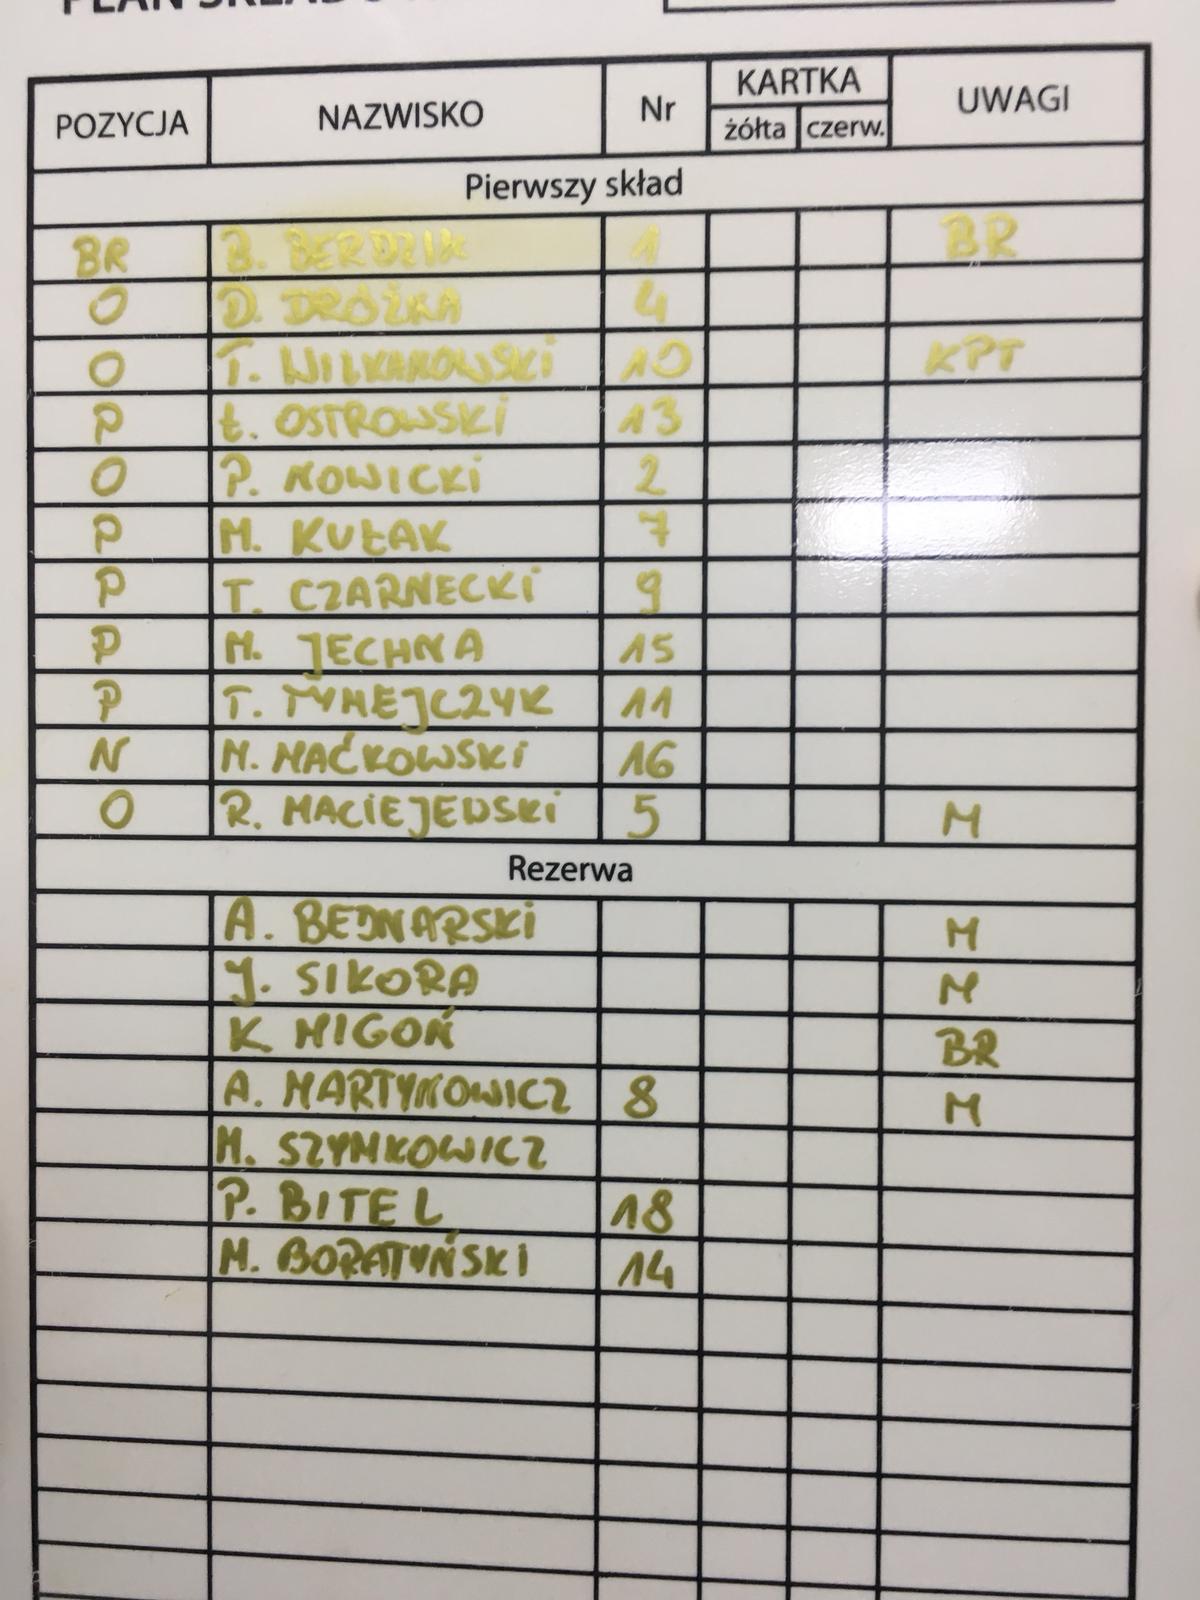 POZYCJA NAZWISKO Nr KARTKA UWAGI
żółta czerw.
Pierwszy skład
BR B. BERDZIK 1 BR
O D. DRÓŻKA 4
O T. WILKANOWSKI 10 KPT
P Ł. OSTROWSKI 13
O P. NOWICKI 2
P M. KUŁAK 7
P T. CZARNECKI 9
P M. JECHNA 15
P T. TYMEJCZYK 11
N M. MAĆKOWSKI 16
O R. MACIEJEWSKI 5 M
Rezerwa
A. BEDNARSKI M
J. SIKORA M
K. MIGOŃ BR
A. MARTYNOWICZ 8 M
M. SZYMKOWICZ
P. BITEL 18
M. BORATYŃSKI 14